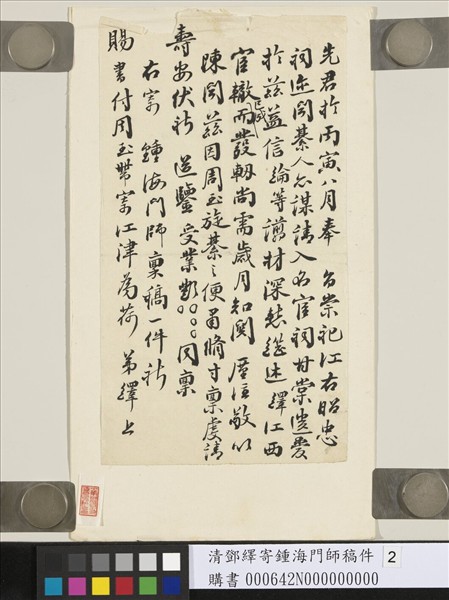 先君於丙寅八月奉 旨崇祀江右昭忠
祠迹聞綦人亦謀請入名宦祠甘棠遺愛
於茲益信綸等譾材深愁繼述 繹江西
宦轍而發軔尚需歲月知關 廑注敬以
陳聞茲因周玉旋綦之便 脩寸稟虔請
壽安伏祈 鑒受業鄧○○○同稟
右寄 鍾海門師稟稿一件祈
賜書付周玉帶寄江津為荷 弟繹上
清鄧繹寄鍾海門師稿件 2
購書 000642N000000000